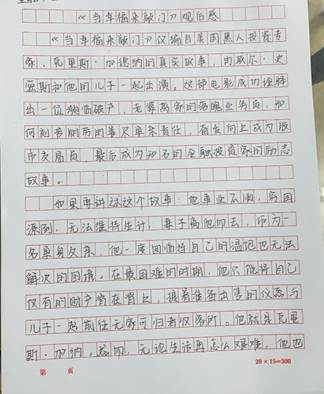 《当幸福来敲门》观后感
《当幸福来敲门》改编自美国黑人投资专
家，克里斯·加德纳的真实故事，由威尔·史
密斯和他的儿子一起出演。这部电影成功诠释
出一位濒临破产，无 的落魄业务员，如
何刻苦耐劳的善尽单亲责任，奋发向上成为股
市交易员，最后成为知名的金融投资家的励志
故事。
如果再讲述这个故事：他事业不顺，穷困
潦倒，无法维持生计，妻子离他而去，成为一
名单身父亲，他一度面临连自己的温饱也无法
解决的困境。在最困难的时期，他只能将自己
仅有的财产背在背上，提着 与
儿子一起前往无家可归者收容所。他就是克里
斯·加纳。 ，无论生活再怎么艰难，他也
第 页
20×15=300